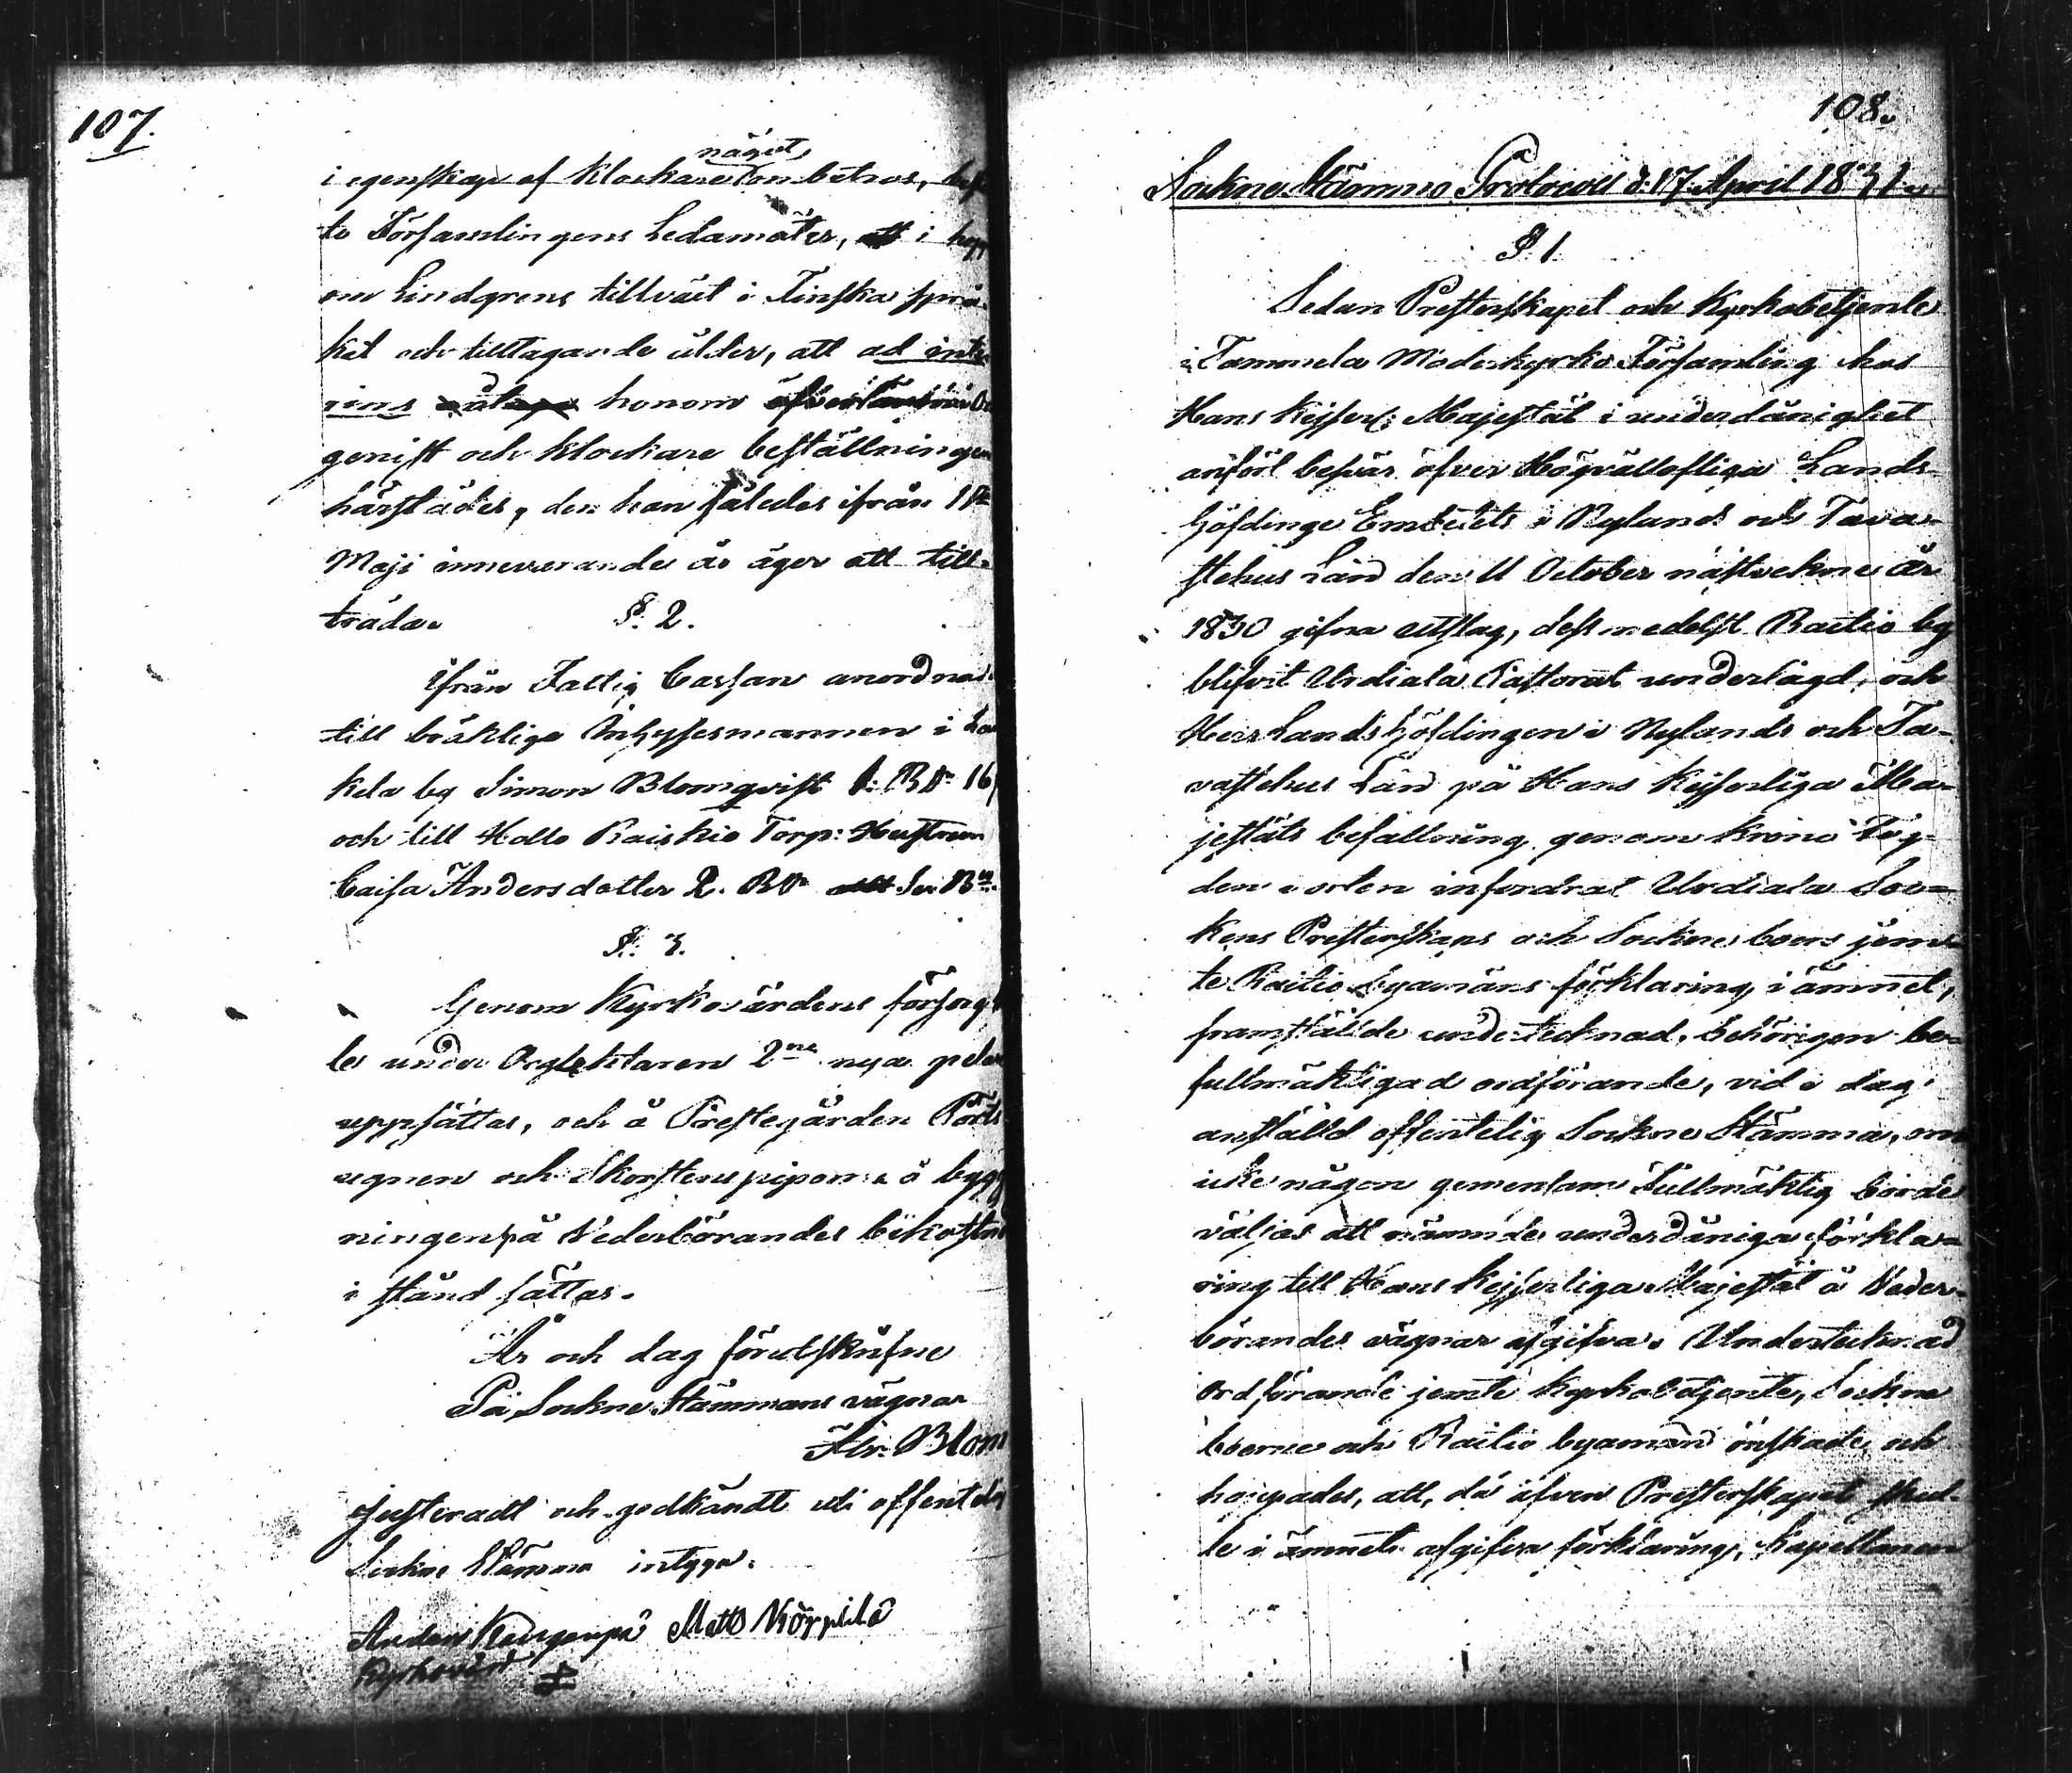 107.
något
i egenskap af Klockare ombetros,
te Församlingens Ledamöter, i hopp
om Lindgrens tillväxt i Finska språ-
ket och tilltagande ålder, att ad inte-
rims honom Or
genist och Klockare beställningen
härstädes, den han således ifrån 1sta
Maji innevarande år äger att till-
träda.
§. 2.
Ifrån Fattig Cassan anordnad
till bräklige Inhysesmannen i
kela by Simon Blomqvist 1. Rd. 16
och till Hollo Raiskio Torp: Hustrun
Caisa Andersdotter 2. Rd.
§. 3.
Genom Kyrkovärdens försorg
les under Orglektaren 2ne nya pelar
uppsättas, och å Prestegården Pörts
ugnen och Skorstens piporne å bygg
ningen på Vederbörandes bekostn
i stånd sättas.
År och dag förutskrifne
På Sockne Stämmans vägnar
Abr. Blom
Justeradt och godkändt uti offentelig
Sockne Stämma intyga.
Anders Matts Körpilä
Kyrkovärd
108.
Sockne Stämmo Protocoll d: 17 April 1831.
§. 1.
Sedan Presterskapet och Kyrkobetjente
i Tammela Moderkyrko Församling hos
Hans Kejserl: Majestät i underdånighet
anfört besvär öfver Högvällofliga Lands-
höfdinge Embetets i Nylands och Tava-
stehus Län den 11 October nästvekne år
1830 gifna utslag, dess medelst Raitio by
blifvit Urdiala Pastorat underlagd, och
Herr Landshöfdingen i Nylands och Ta-
vastehus Län på Hans Kejserliga Ma-
jestäts befallning genom Krono Fog-
den i orten infordrat Urdiala Soc-
kens Presterskaps och Sockne boers jem-
te Raitio byamäns förklaring i ämnet,
framstälde undertecknad, behörigen be-
fullmäktigad ordförande, vid i dag
anstäld offentelig Sockne Stämma, om
icke någon gemensam Fullmäktig borde
väljas att nämnde underdåniga förkla-
ring till Hans Kejserliga Majestät å Veder-
börandes vägnar afgifva. Undertecknad
Ordförande jemte Kyrkobetjente, Sockne
boerne och Raitio byamän önskade och
hoppades, att, då äfven Presterskapet skul-
le i ämnet afgifva förklaring, Kapellanen